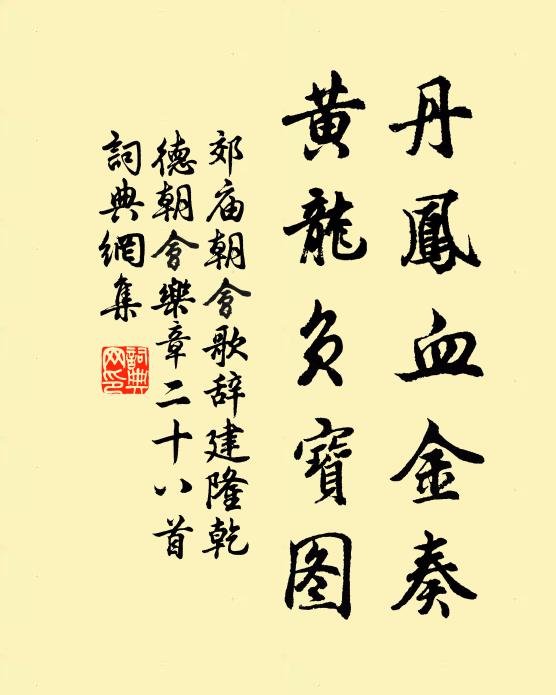 丹鳳血金奏
黃龍負寶图
郊庙朝會歌辞建隆乾
德朝會樂章二十八首
詞典網集
詞典网印